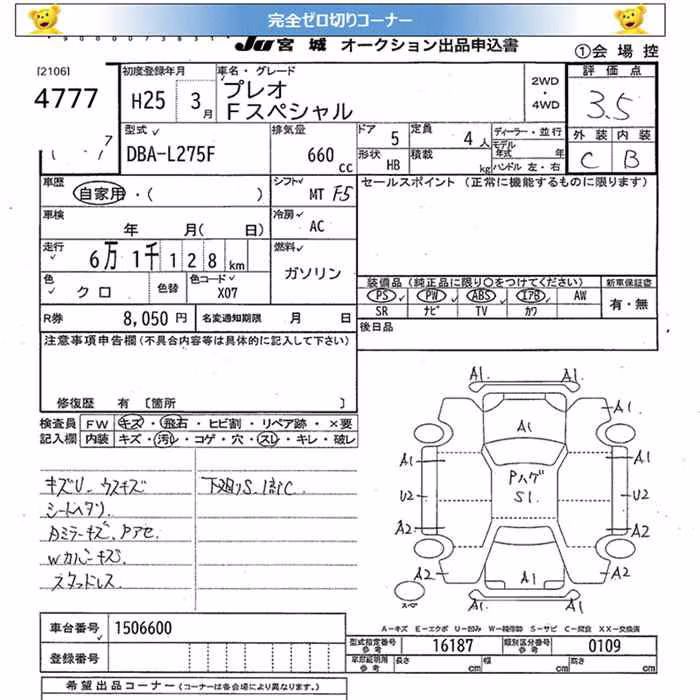 完全ゼロ切りコーナー
90000073831
JU 宮城 オークション出品申込書
①会場控
[2106]
4777
7
初度登録年月
H25 3月
車名・グレード
プレオ
Fスペシャル
2WD
・
4WD
評価点
3.5
外装 内装
C B
型式
DBA-L275F
排気量
660 cc
ドア 5
定員 4人
形状 HB
積載 kg
ディーラー・並行
モデル年式 年
ハンドル 左・右
車歴
自家用・( )
シフト MT F5
セールスポイント (正常に機能するものに限ります)
車検
年 月( 日)
冷房 AC
走行
6万1千128km
燃料
ガソリン
色
クロ
色替
色コード
X07
装備品 (純正品に限り○をつけてください)
新車保証書
PS PW ABS エアB AW
SR ナビ TV カワ
有・無
R券 8,050円
名変通知期限 月 日
後日品
注意事項申告欄 (不具合内容等は具体的に記入して下さい)
修復歴 有 [箇所 ]
検査員
記入欄
FW キズ・飛石・ヒビ割・リペア跡・×要
内装 キズ・汚レ・コゲ・穴・スレ・キレ・破レ
キズU、ウスキズ
シートヘタリ
Aミラーキズ、Pアセ
Wカバーキズ
スタッドレス
下廻りS
A1 A1
A1
A1
A1 A1
Pハゲ
S1
U2 U2
A2 A2
A2 A1 A2
スペア
A1
A-キズ E-エクボ U-凹み W-補修跡 S-サビ C-腐食 XX-交換済
車台番号 1506600
登録番号
型式指定番号
参考
16187
類別区分番号
参考
0109
車庫証明用
参考
長さ cm 幅 cm 高さ cm
希望出品コーナー (コーナーは各会場により異なります。)